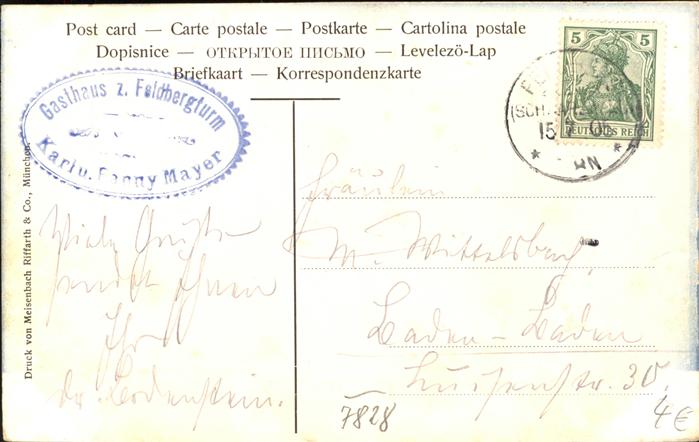 Post card — Carte postale — Postkarte — Cartolina postale
Dopisnice — ОТКРЫТОЕ ПИСЬМО — Levelezö-Lap
Briefkaart — Korrespondenzkarte
Gasthaus z. Feldbergturm
Karl u. Fanny Mayer
5 5
DEUTSCHES REICH
(SCH
15
Druck von Meisenbach Riffarth & Co., München.
Viele Grüße
sendet Ihnen
Ihr
Dr. Bodenstein.
Fräulein
M. Wittelsbach,
Baden-Baden
Luisenstr. 30.
7828
4€